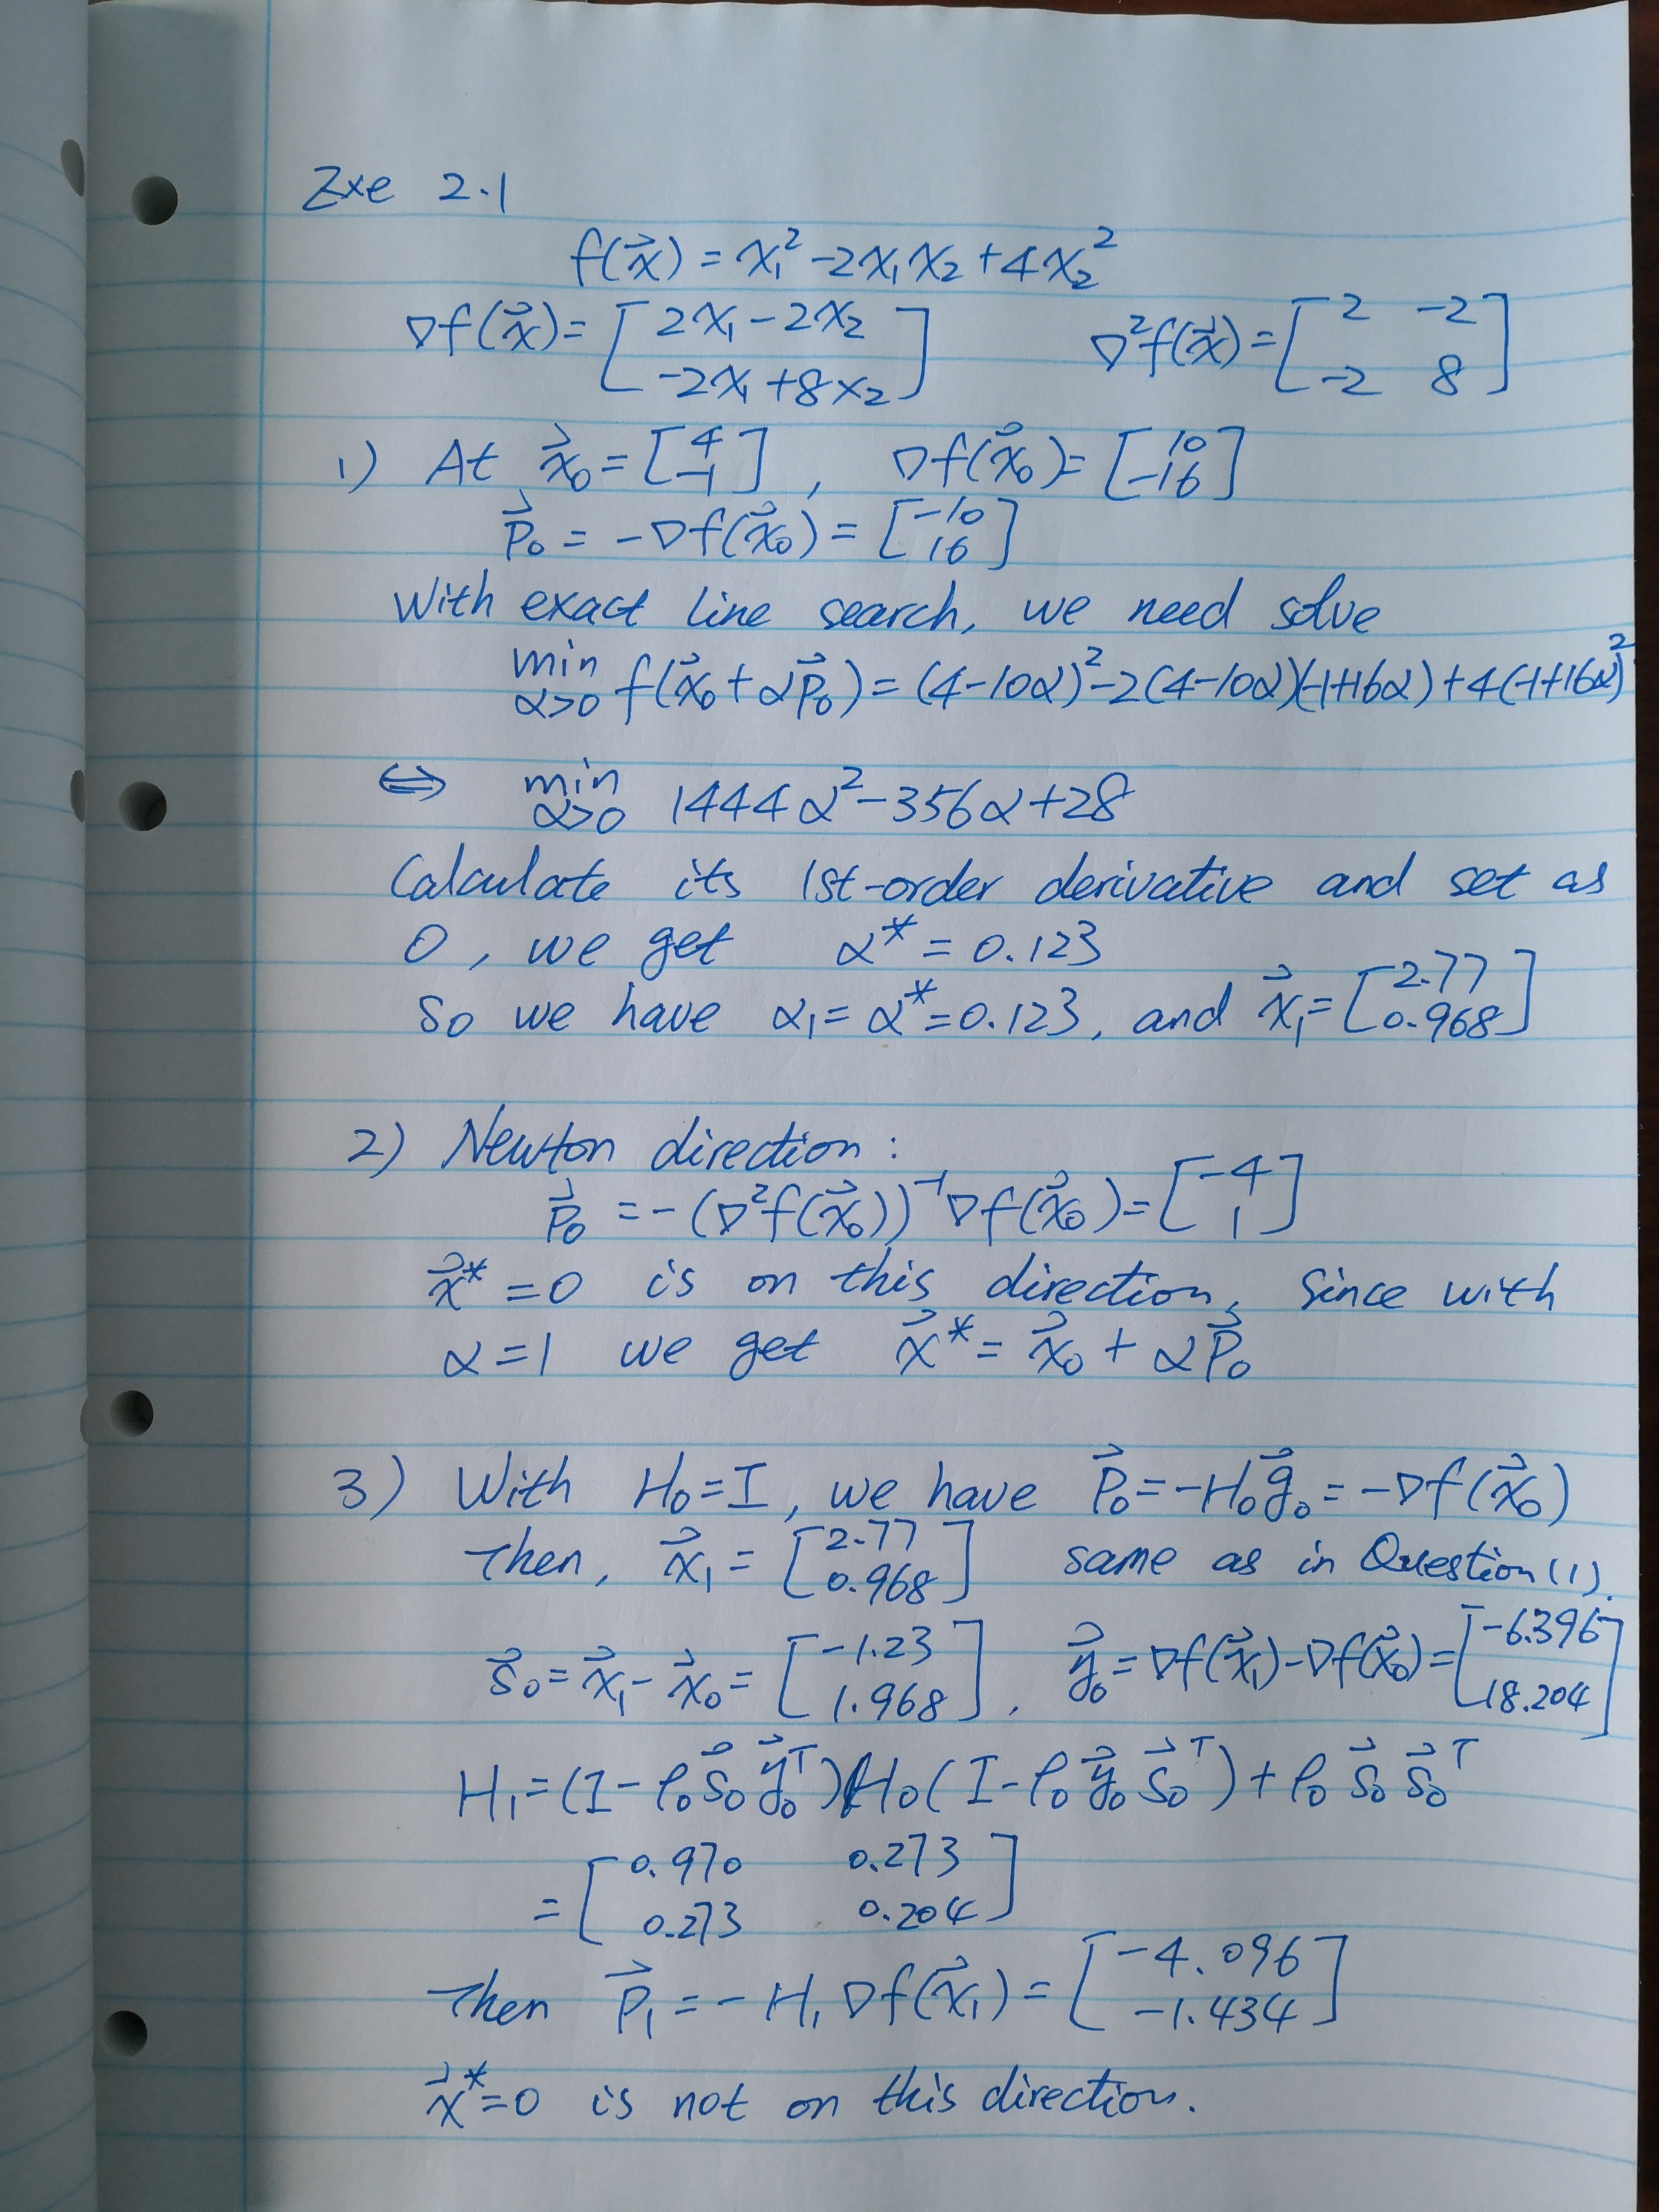 Exe 2.1
f(x⃗) = x₁² - 2x₁x₂ + 4x₂²
∇f(x⃗) = [2x₁ - 2x₂; -2x₁ + 8x₂] ∇²f(x⃗) = [2 -2; -2 8]
1) At x⃗₀ = [4; -1], ∇f(x⃗₀) = [10; -16]
p⃗₀ = -∇f(x⃗₀) = [-10; 16]
With exact line search, we need solve
min α>0 f(x⃗₀ + αp⃗₀) = (4-10α)² - 2(4-10α)(-1+16α) + 4(-1+16α)²
⇔ min α>0 1444α² - 356α + 28
Calculate its 1st-order derivative and set as
0, we get α* = 0.123
So we have α₁ = α* = 0.123, and x⃗₁ = [2.77; 0.968]
2) Newton direction :
p⃗₀ = -(∇²f(x⃗₀))⁻¹∇f(x⃗₀) = [-4; 1]
x⃗* = 0 is on this direction, since with
α = 1 we get x⃗* = x⃗₀ + αp⃗₀
3) With H₀ = I, we have p⃗₀ = -H₀g⃗₀ = -∇f(x⃗₀)
Then, x⃗₁ = [2.77; 0.968] same as in Question (1).
s⃗₀ = x⃗₁ - x⃗₀ = [-1.23; 1.968], y⃗₀ = ∇f(x⃗₁) - ∇f(x⃗₀) = [-6.396; 18.204]
H₁ = (I - ρ₀s⃗₀y⃗₀ᵀ)H₀(I - ρ₀y⃗₀s⃗₀ᵀ) + ρ₀s⃗₀s⃗₀ᵀ
= [0.970 0.273; 0.273 0.204]
Then p⃗₁ = -H₁∇f(x⃗₁) = [-4.096; -1.434]
x⃗* = 0 is not on this direction.